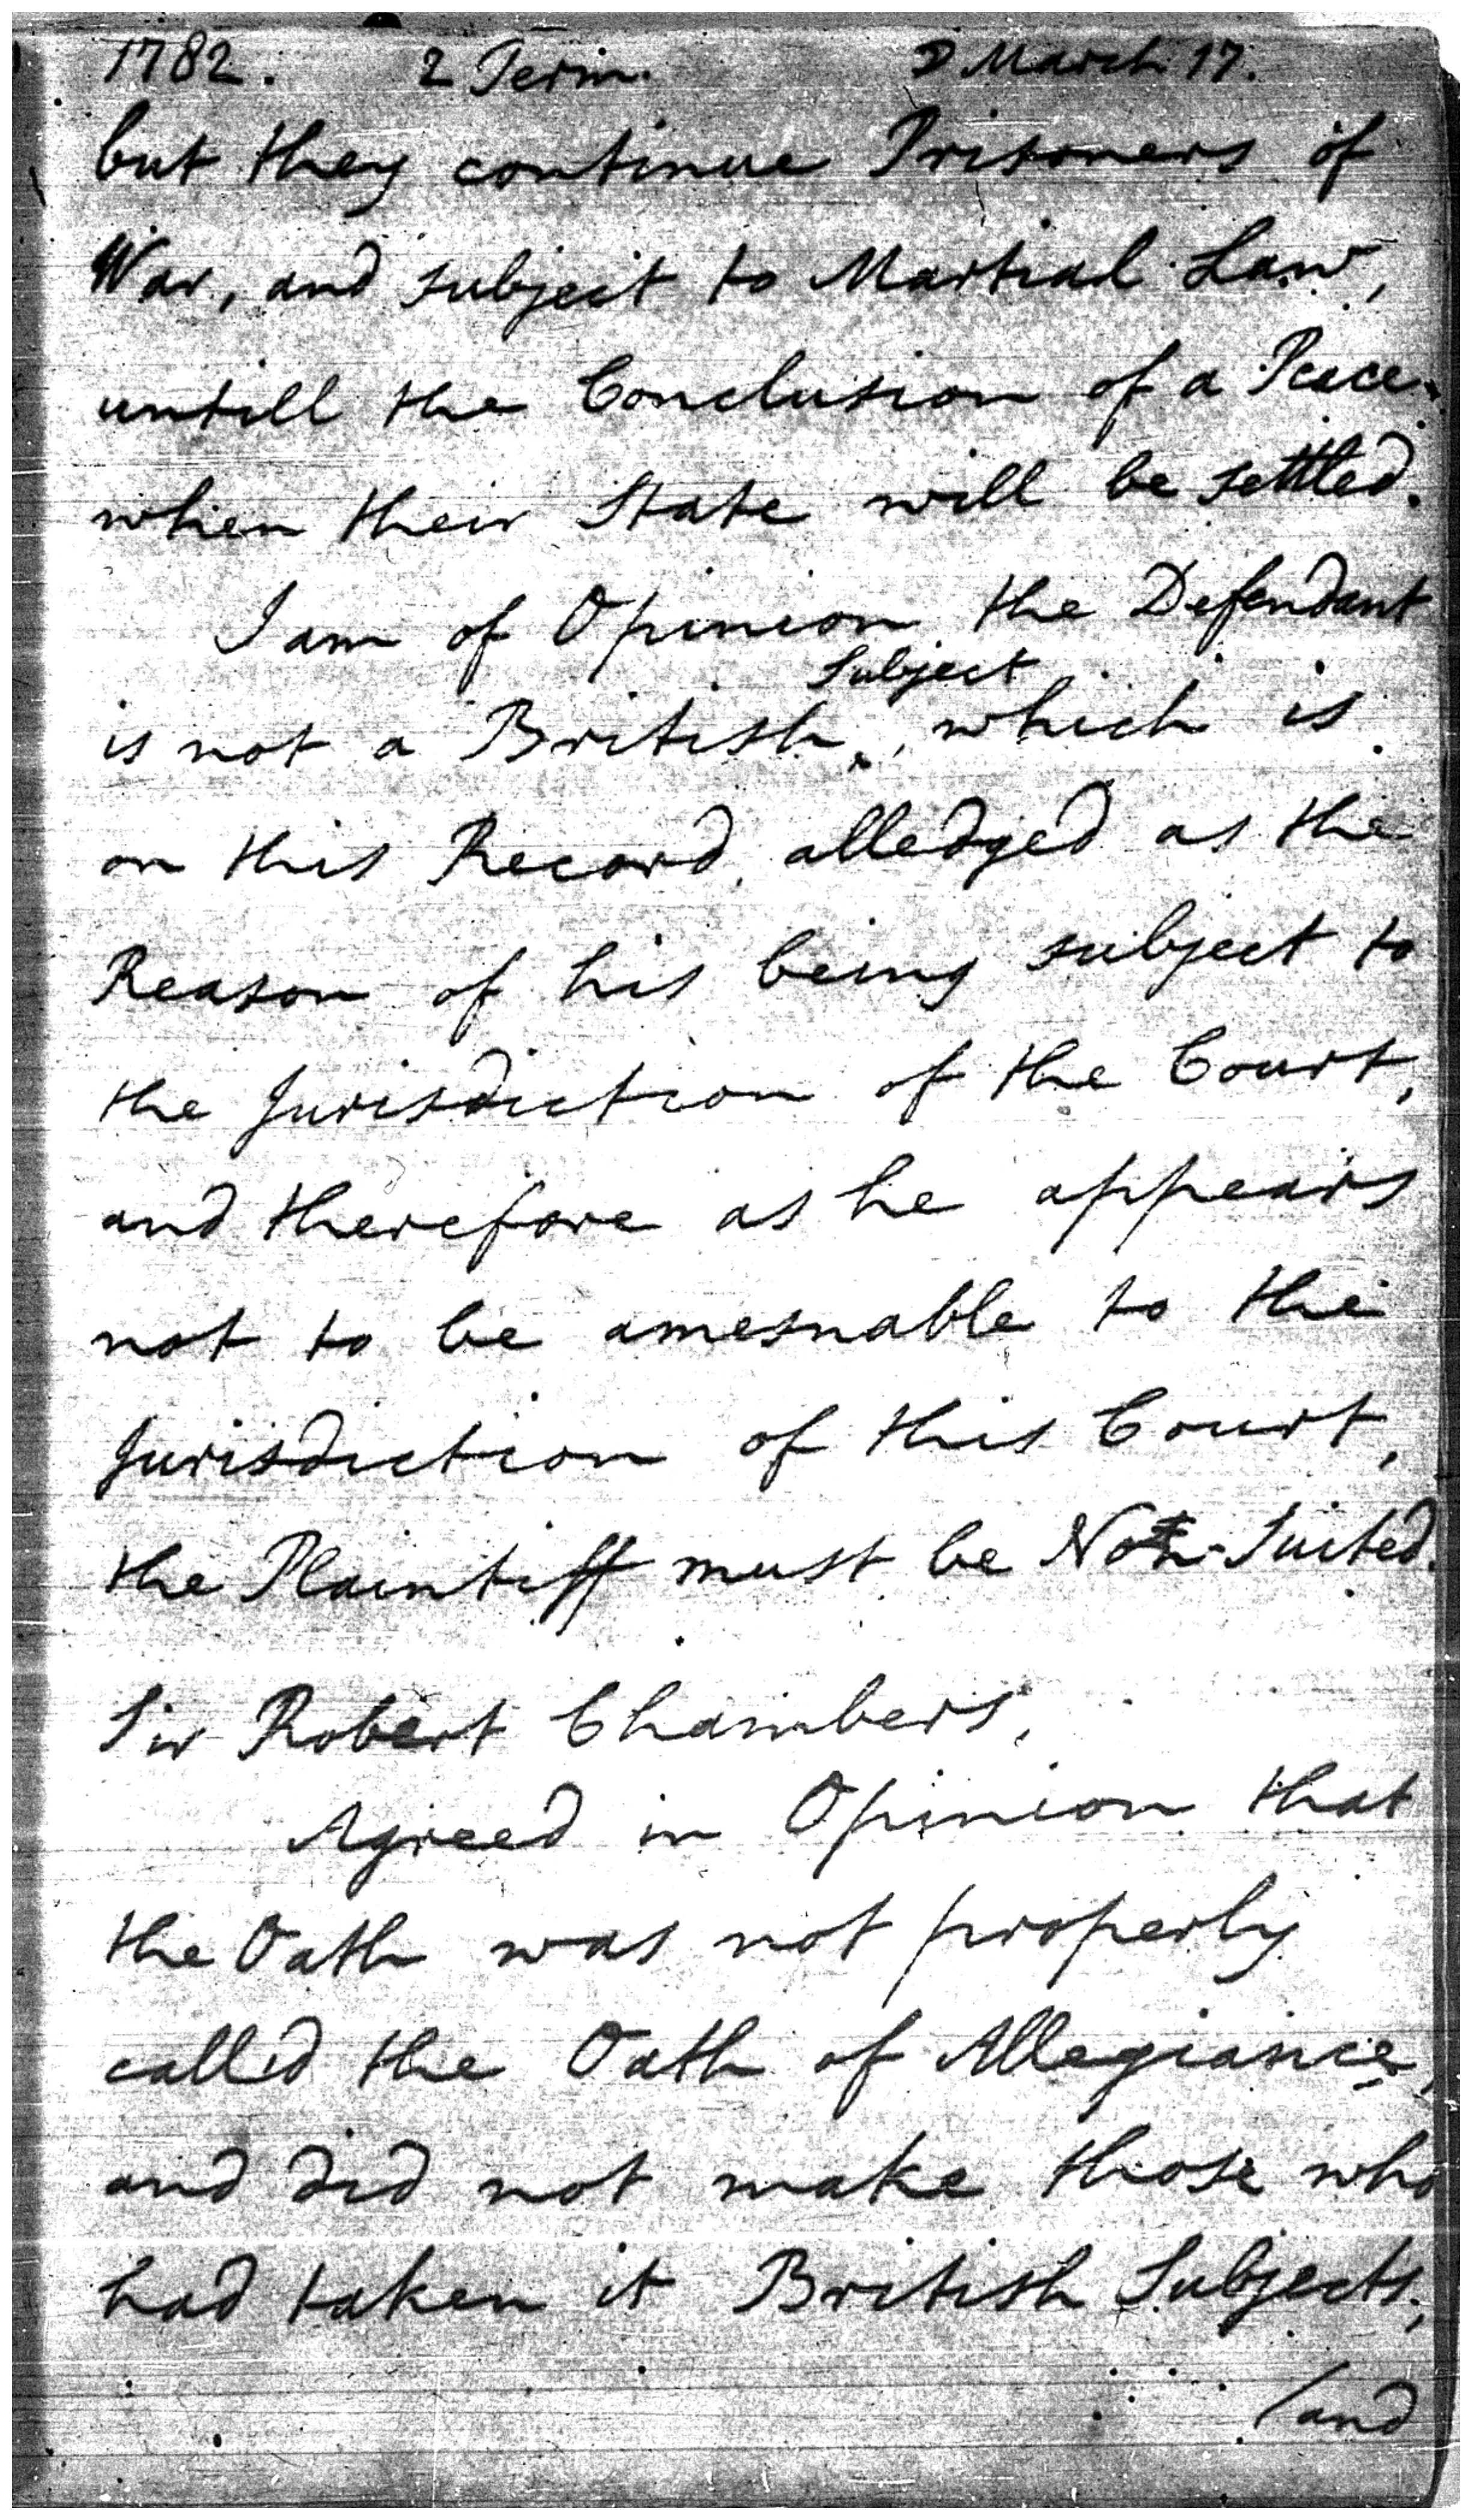 1782. 2 Term. D March 17.
but they continue Prisoners of
War, and subject to Martial Law,
untill the Conclusion of a Peace.
when their State will be settled.
I am of Opinion the Defendant
Subject
is not a British ‸, which is
on this Record alledged as the
Reason of his being subject to
the Jurisdiction of the Court,
and therefore as he appears
not to be amesnable to the
Jurisdiction of this Court,
the Plaintiff must be Non-Suited.
Sir Robert Chambers,
Agreed in Opinion that
the Oath was not properly
call'd the Oath of Allegiance,
and did not make those who
had taken it British Subjects,
(and